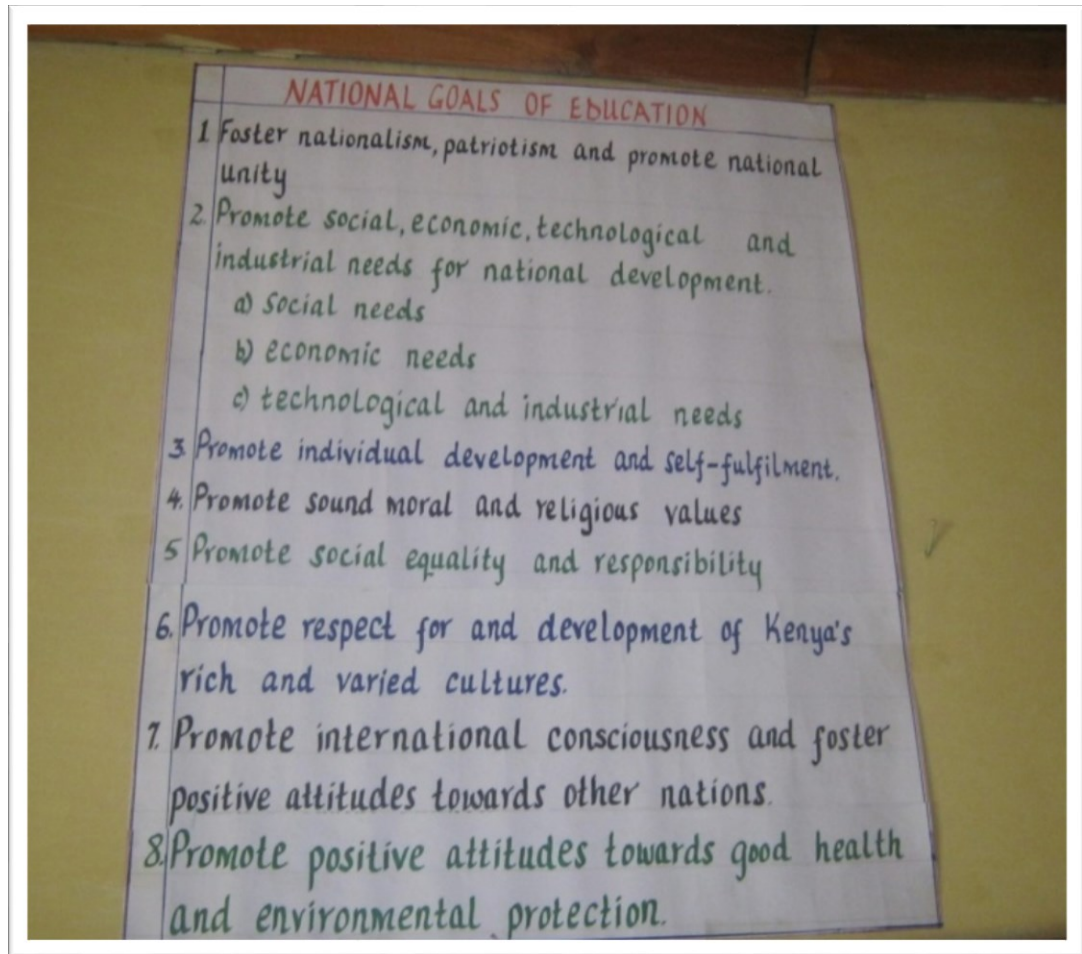 NATIONAL GOALS OF EDUCATION
1 Foster nationalism, patriotism and promote national
unity
2. Promote social, economic, technological and
industrial needs for national development.
a) Social needs
b) economic needs
c) technological and industrial needs
3. Promote individual development and self-fulfilment.
4. Promote sound moral and religious values
5 Promote social equality and responsibility
6. Promote respect for and development of Kenya's
rich and varied cultures.
7. Promote international consciousness and foster
positive attitudes towards other nations.
8. Promote positive attitudes towards good health
and environmental protection.